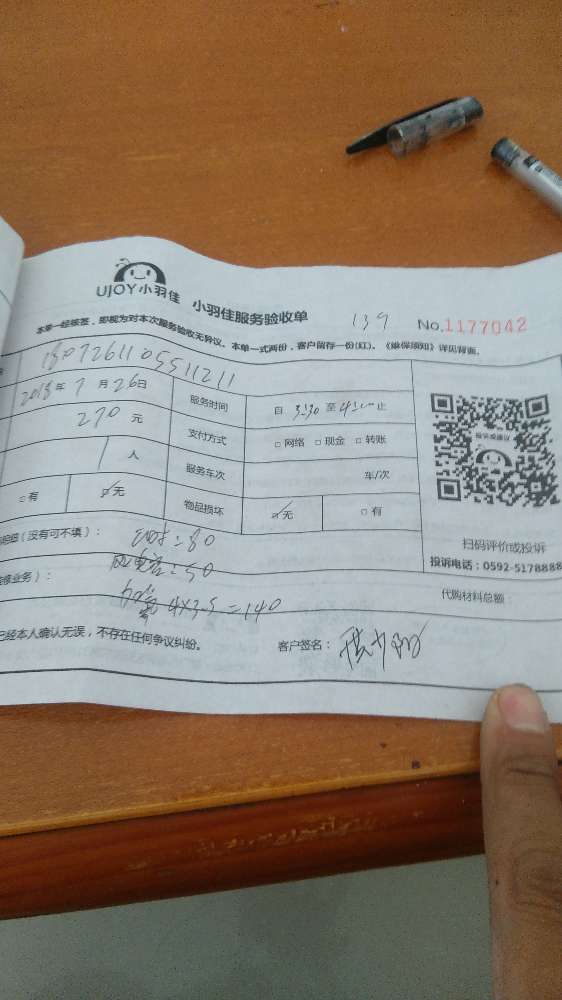 UJOY小羽佳 小羽佳服务验收单 139 No.1177042
本单一经核签，即视为对本次服务验收无异议。本单一式两份，客户留存一份(红)。《维保须知》详见背面。
1807261105511211
2018年7月26日 服务时间 自 3:30 至 4:30 止
270元 支付方式 □网络 □现金 □转账
人 服务车次 车/次
□有 ☑无 物品损坏 ☑无 □有
投诉或建议
扫码评价或投诉
投诉电话：0592-5178888
(没有可不填)： :80
:50
业务)： 代购材料总额：
4×35=140
已经本人确认无误，不存在任何争议纠纷。 客户签名：